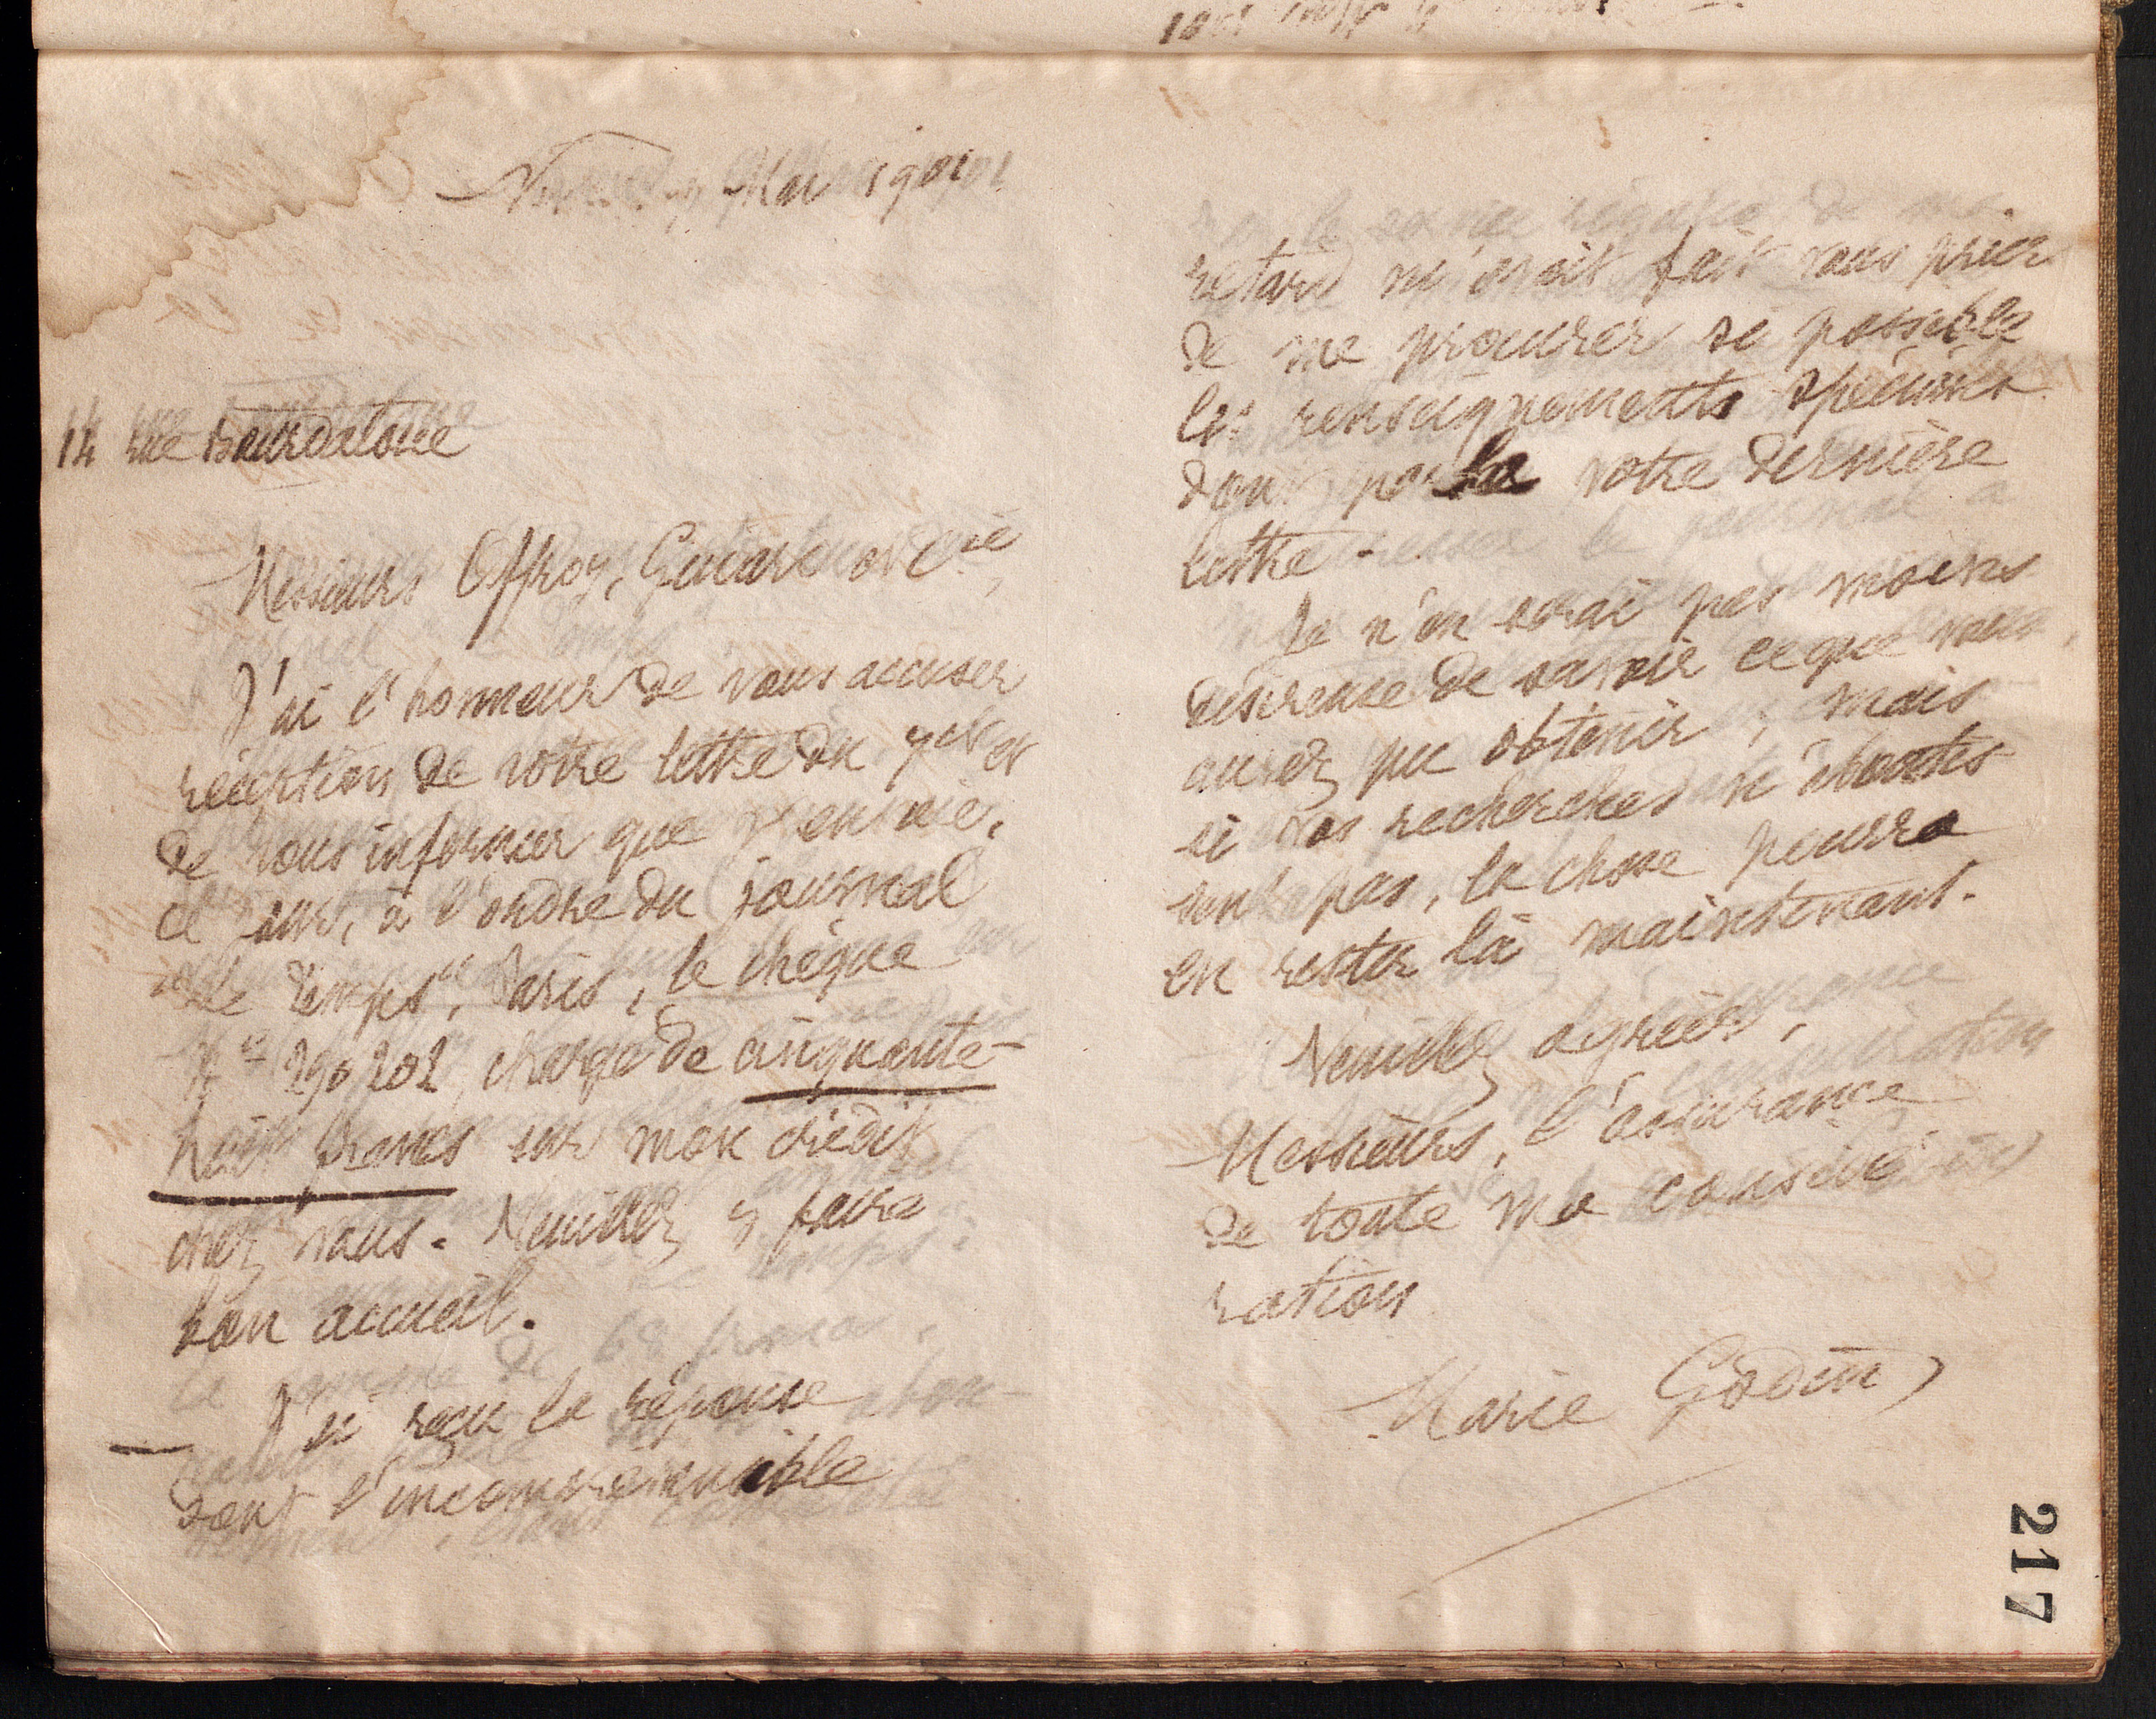 Mars 1901
14 rue Bourdaloue
Messieurs Offroy, Guiard et Cie,
J'ai l'honneur de vous accuser
réception de votre lettre du 7 ct et
de vous informer que j'envoie,
ce jour, à l'ordre du journal
"Le Temps", Paris, le chèque
No 290202, chargé de cinquante-
huit francs sur mon crédit
chez vous. Veuillez y faire
bon accueil.
J'ai reçu la réponse
dont l'incompréhensible
retard m'avait fait vous prier
de me procurer si possible
les renseignements spécifiés
dont parle votre dernière
lettre.
Je n'en serai pas moins
désireuse de savoir ce que vous
aurez pu obtenir ; mais
si vos recherches n'aboutis-
sent pas, la chose pourra
en rester là maintenant.
Veuillez agréer,
Messieurs, l'assurance
de toute ma considé-
ration
Marie Godin
217